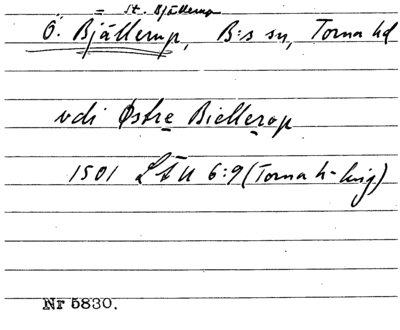 = St. Bjällerup
Ö. Bjällerup, B:s sn, Torna hd
vdi Østre Biellerop
1501 LÄU 6:9 (Torna h-ling)
Nr 5830.